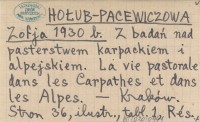 HOŁUB-PACEWICZOWA
Zofja 1930 b. Z badań nad
pasterstwem karpackiem i
alpejskiem. La vie pastorale
dans les Carpathes et dans
les Alpes. — Kraków.
Stron 36, ilustr., tabl. da Rés.